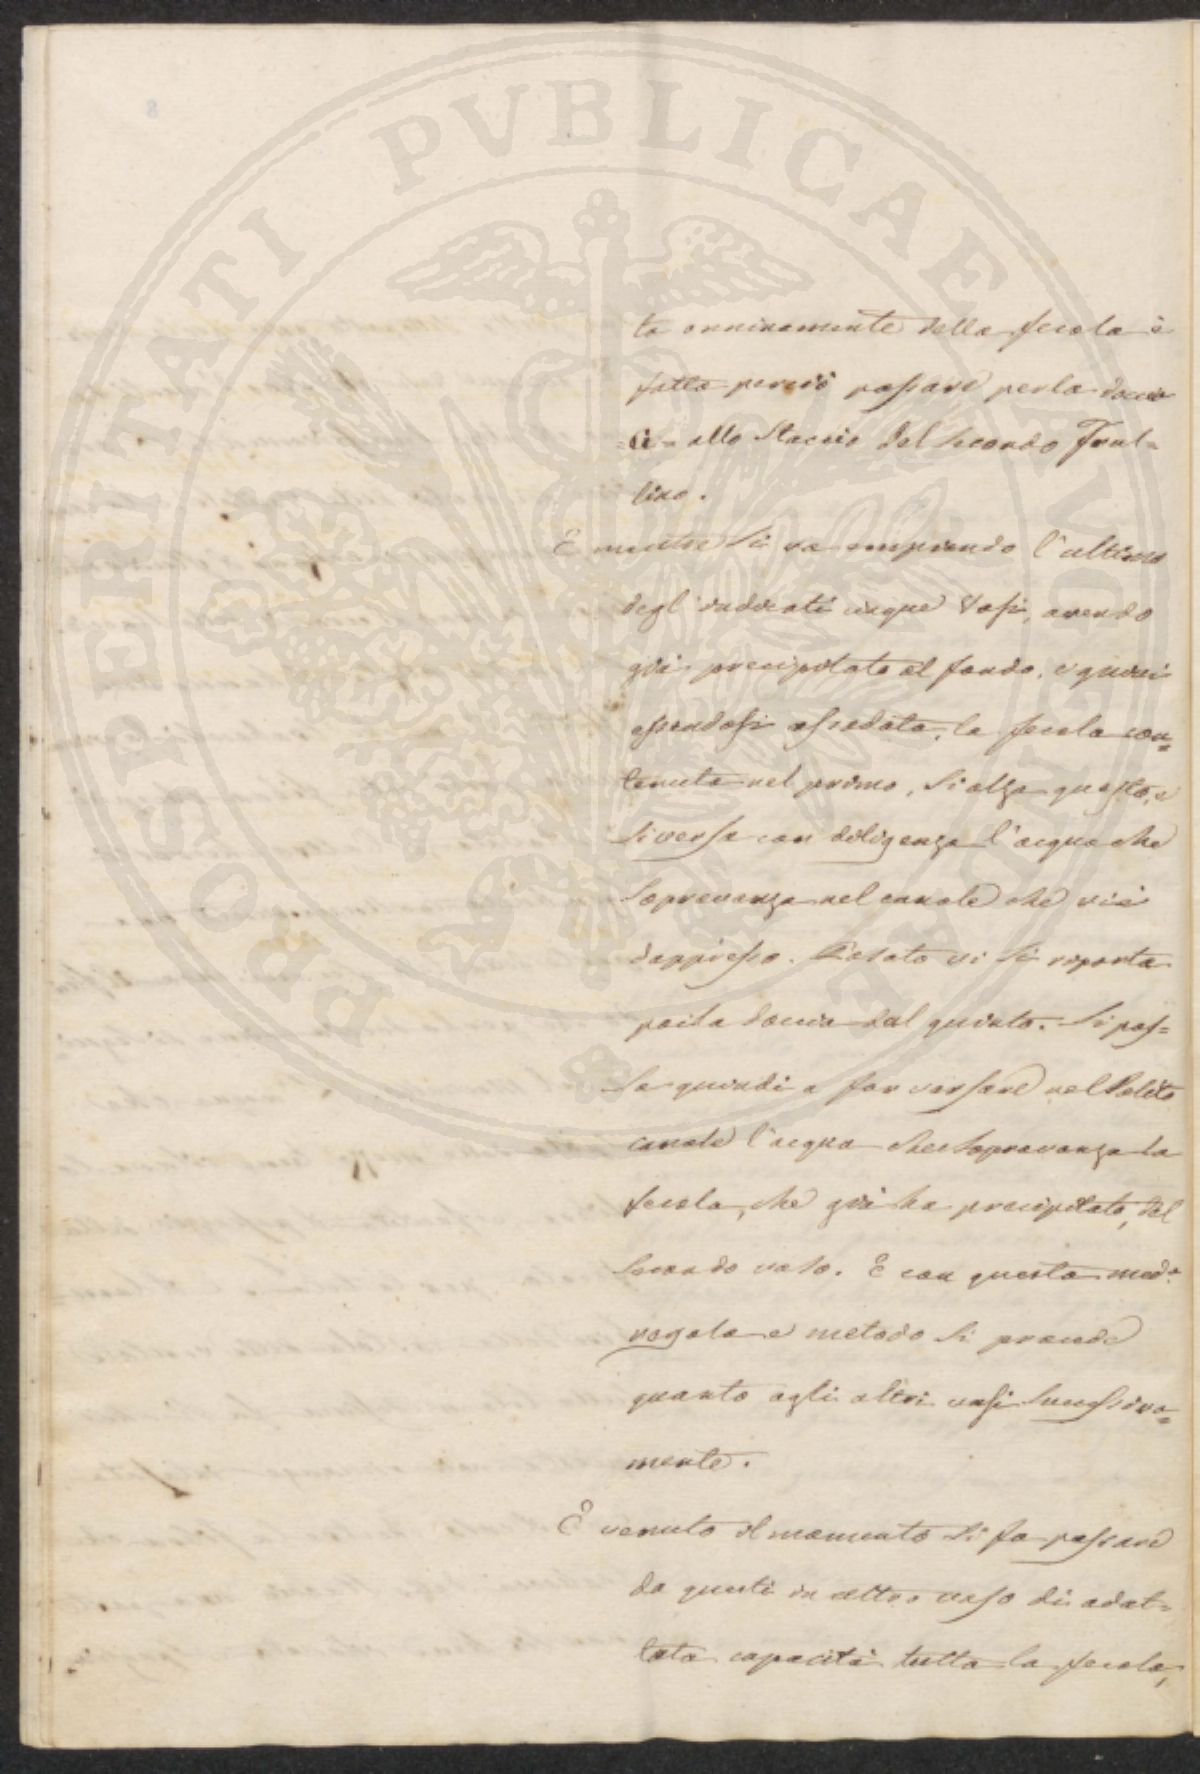 PROSPERITATI PVBLICAE AVGENDAE
ta onninamente della fecola è
fatta perciò passare per la doccia
allo Staccio del secondo Frul=
lino.
E mentre si va empiendo l'ultimo
degl'indicati cinque Vasi, avendo
già precipitato al fondo, e quasi
essendosi assodata, la fecola con=
tenuta nel primo, si alza questo, e
si versa con diligenza l'acqua che
sopravanza nel canale che vi è
dappresso. Posato vi si riporta
poi la doccia dal quinto. Si pas=
sa quindi a far versare nel Solito
canale l'acqua che sopravanza la
fecola, che già ha precipitato, del
secondo vaso. E con questa med.a
regola e metodo si procede
quanto agli altri vasi successiva=
mente.
E venuto il momento si fa passare
da questi in altro vaso di adat=
tata capacità tutta la fecola,